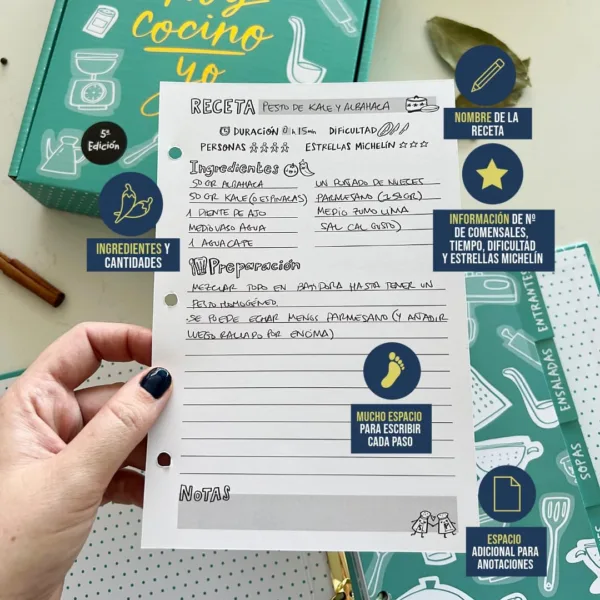 Hoy
cocino
yo
5ª
Edición
RECETA PESTO DE KALE Y ALBAHACA
DURACIÓN 0h 15min DIFICULTAD
PERSONAS ESTRELLAS MICHELÍN
Ingredientes
50 GR ALBAHACA
50 GR KALE (O ESPINACAS)
1 DIENTE DE AJO
MEDIO VASO AGUA
1 AGUACATE
UN PUÑADO DE NUECES
PARMESANO (25GR)
MEDIO ZUMO LIMA
SAL (AL GUSTO)
Preparación
MEZCLAR TODO EN BATIDORA HASTA TENER UN
PESTO HOMOGÉNEO.
SE PUEDE ECHAR MENOS PARMESANO (Y AÑADIR
LUEGO RALLADO POR ENCIMA)
NOTAS
NOMBRE DE LA
RECETA
INFORMACIÓN DE Nº
DE COMENSALES,
TIEMPO, DIFICULTAD
Y ESTRELLAS MICHELÍN
INGREDIENTES Y
CANTIDADES
MUCHO ESPACIO
PARA ESCRIBIR
CADA PASO
ESPACIO
ADICIONAL PARA
ANOTACIONES
ENTRANTES
ENSALADAS
SOPAS